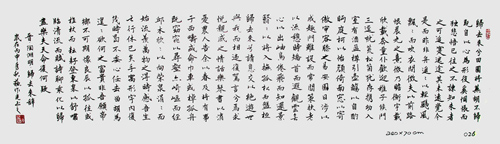 歸去來兮田園將蕪胡不歸
既自以心為形役奚惆悵而
獨悲悟已往之不諫知來者
之可追實迷途其未遠覺今
是而昨非舟遙遙以輕颺風
飄飄而吹衣問征夫以前路
恨晨光之熹微乃瞻衡宇載
欣載奔僮僕歡迎稚子候門
三逕就荒松菊猶存攜幼入
室有酒盈樽引壺觴以自酌
眄庭柯以怡顏倚南窗以寄
傲審容膝之易安園日涉以
成趣門雖設而常關策扶老
以流憩時矯首而遐觀雲無
心以出岫鳥倦飛而知還景
翳翳以將入撫孤松而盤桓
歸去來兮請息交以絕遊世
與我而相違復駕言兮焉求
悅親戚之情話樂琴書以消
憂農人告余以春及將有事
於西疇或命巾車或棹孤舟
既窈窕以尋壑亦崎嶇而經
丘木欣欣以向榮泉涓涓而
始流羨萬物之得時感吾生
之行休已矣乎寓形宇內復
幾時曷不委心任去留胡為
遑遑欲何之富貴非吾願帝
鄉不可期懷良辰以孤往或
植杖而耘耔登東皋以舒嘯
臨清流而賦詩聊乘化以歸
盡樂夫天命復奚疑
晉陶淵明歸去來辭
歲在丙申
220×70cm
026